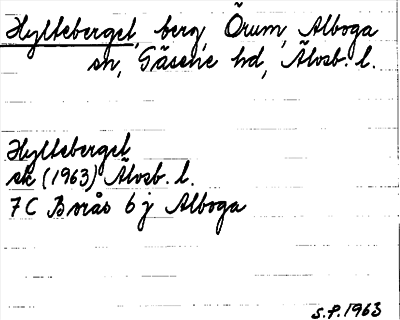 Hylteberget, berg, Örum, Alboga
sn, Gäsene hd, Älvsb. l.
Hylteberget
sk (1963) Älvsb. l.
7C Borås 6 j Alboga
S.P. 1963